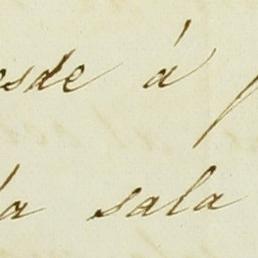 esde á
la sala